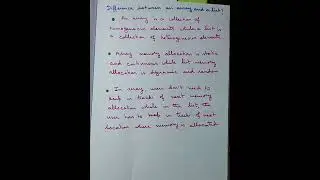 Difference between an array and a list?
An array is a collection of
homogeneous elements while a list is
a collection of heterogeneous elements
Array memory allocation is static
and continuous while list memory
allocation is dynamic and random
In array user don't need to
keep in track of next memory
allocation while in the list, the
user has to keep in track of next
location where memory is allocated